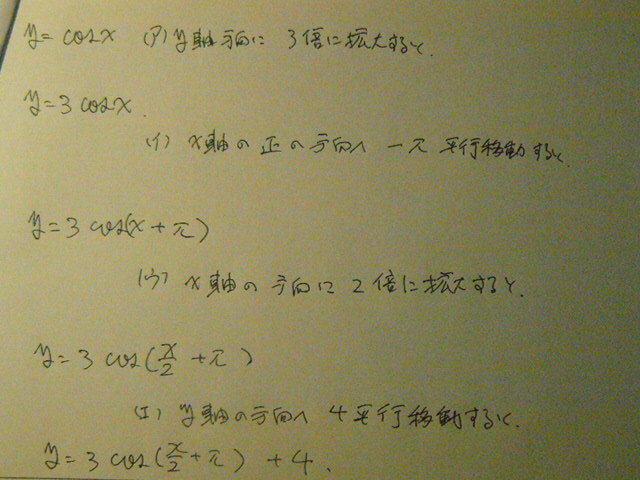 y=cosx (ア) y軸方向に 3倍に拡大すると、
y=3cosx.
(イ) x軸の正の方向へ -π 平行移動すると、
y=3cos(x+π)
(ウ) x軸の方向に2倍に拡大すると、
y=3cos(x/2+π)
(エ) y軸の方向へ 4平行移動すると、
y=3cos(x/2+π)+4.